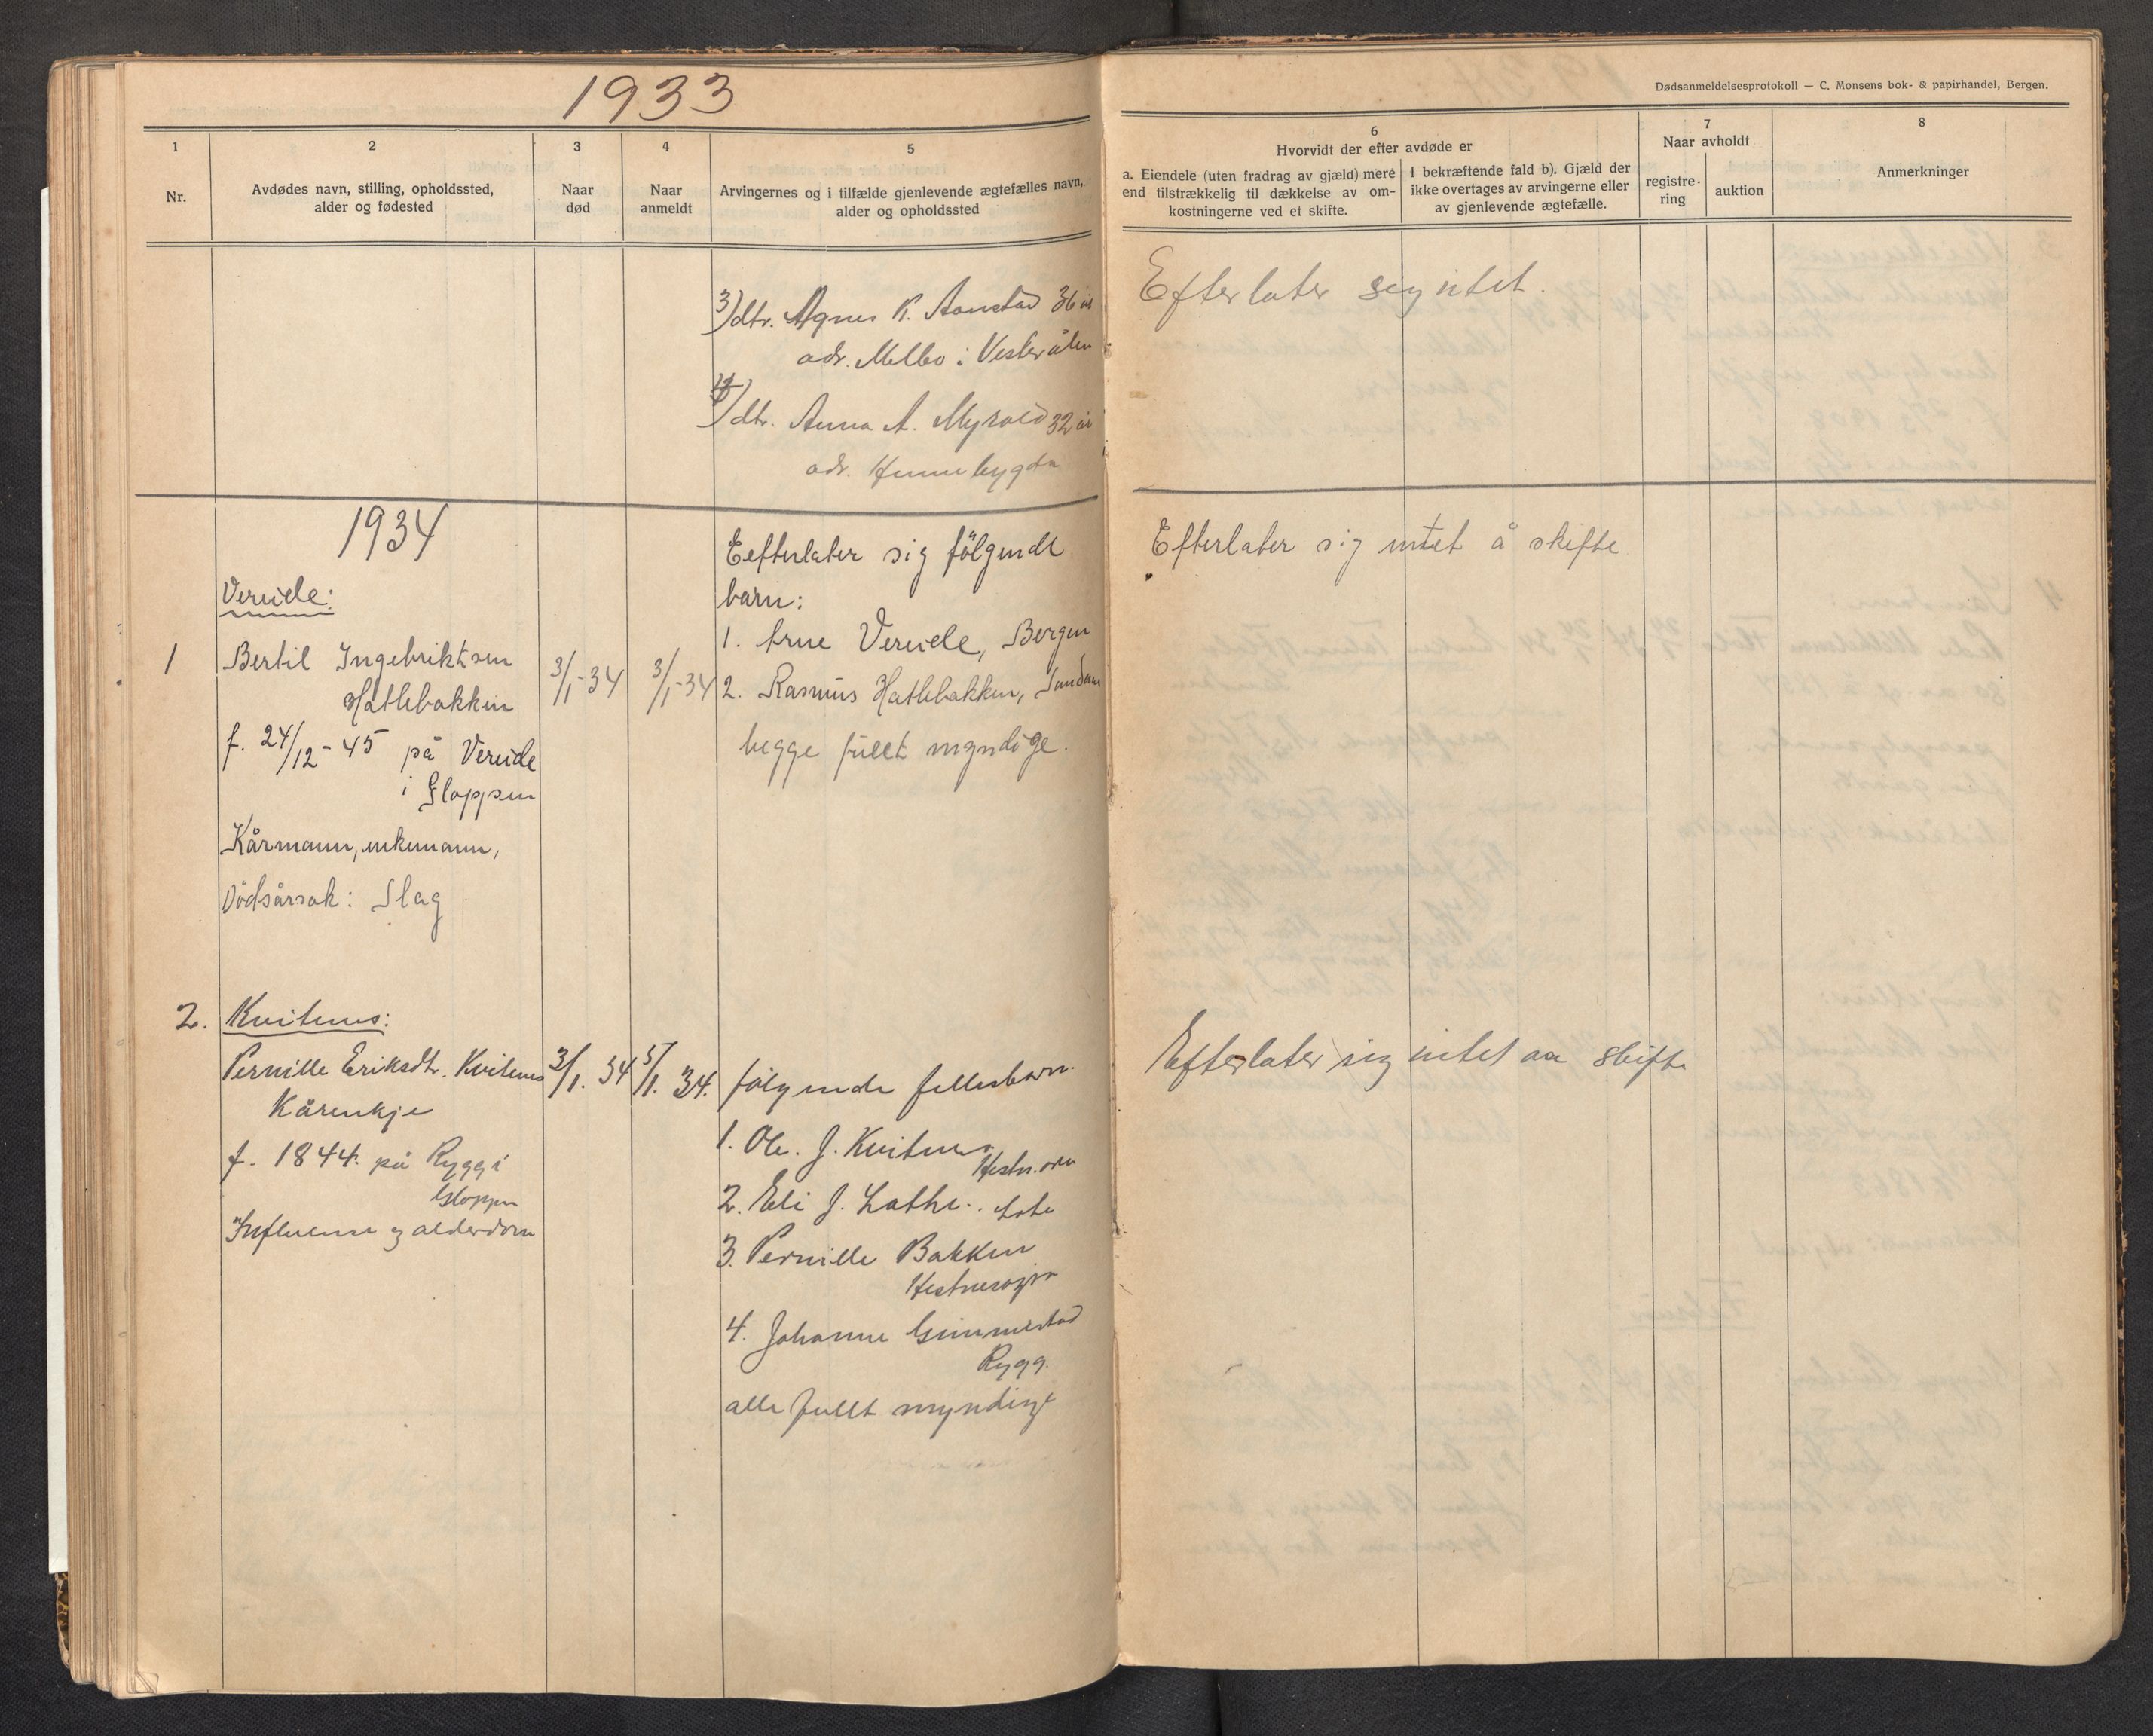 1933
Dødsanmeldelsesprotokoll — C. Monsens bok- & papirhandel, Bergen.
1
Nr.
2
Avdødes navn, stilling, opholdssted,
alder og fødested
3
Naar
død
4
Naar
anmeldt
5
Arvingernes og i tilfælde gjenlevende ægtefælles navn,
alder og opholdssted
6
Hvorvidt der efter avdøde er
a. Eiendele (uten fradrag av gjæld) mere
end tilstrækkelig til dækkelse av om-
kostningerne ved et skifte.
I bekræftende fald b). Gjæld der
ikke overtages av arvingerne eller
av gjenlevende ægtefælle.
7
Naar avholdt
registre-
ring
auktion
8
Anmerkninger
3) dtr. Agnes K. Aanstad 36 år
adr. Melbo i Vesterålen
4) dtr. Anna A. Myrold 32 år
adr. Hennebygda
Efterlater seg intet.
1934
Vereide:
1
Bertil Ingebriktsen
Hatlebakken
f. 24/12-45 på Vereide
i Gloppen
Kårmann, enkemann,
Dödsårsak: Slag
3/1-34
3/1-34
Eefterlater sig fölgende
barn:
1. Arne Vereide, Bergen
2. Rasmus Hatlebakken, Sandane
begge fullt myndige.
Efterlater sig intet å skifte
2.
Kvitenes:
Pernille Eriksdtr. Kvitenes
Kårenkje
f. 1844. på Rygg i
Gloppen
Influensa og alderdom
3/1. 34
5/1. 34.
følgende fellesbarn.
1. Ole. J. Kvitenes
2. Eli J. Lothe. Lote
3. Pernille Bakken
Hestnesøyra
4. Johanne Gimmestad
Rygg.
alle fullt myndige
Efterlater sig intet aa skifte